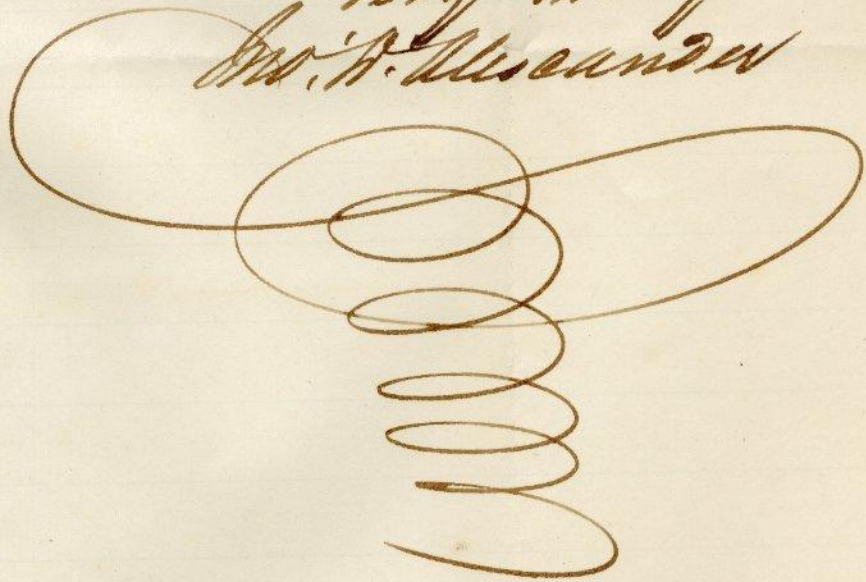 Jno. W. Alexander